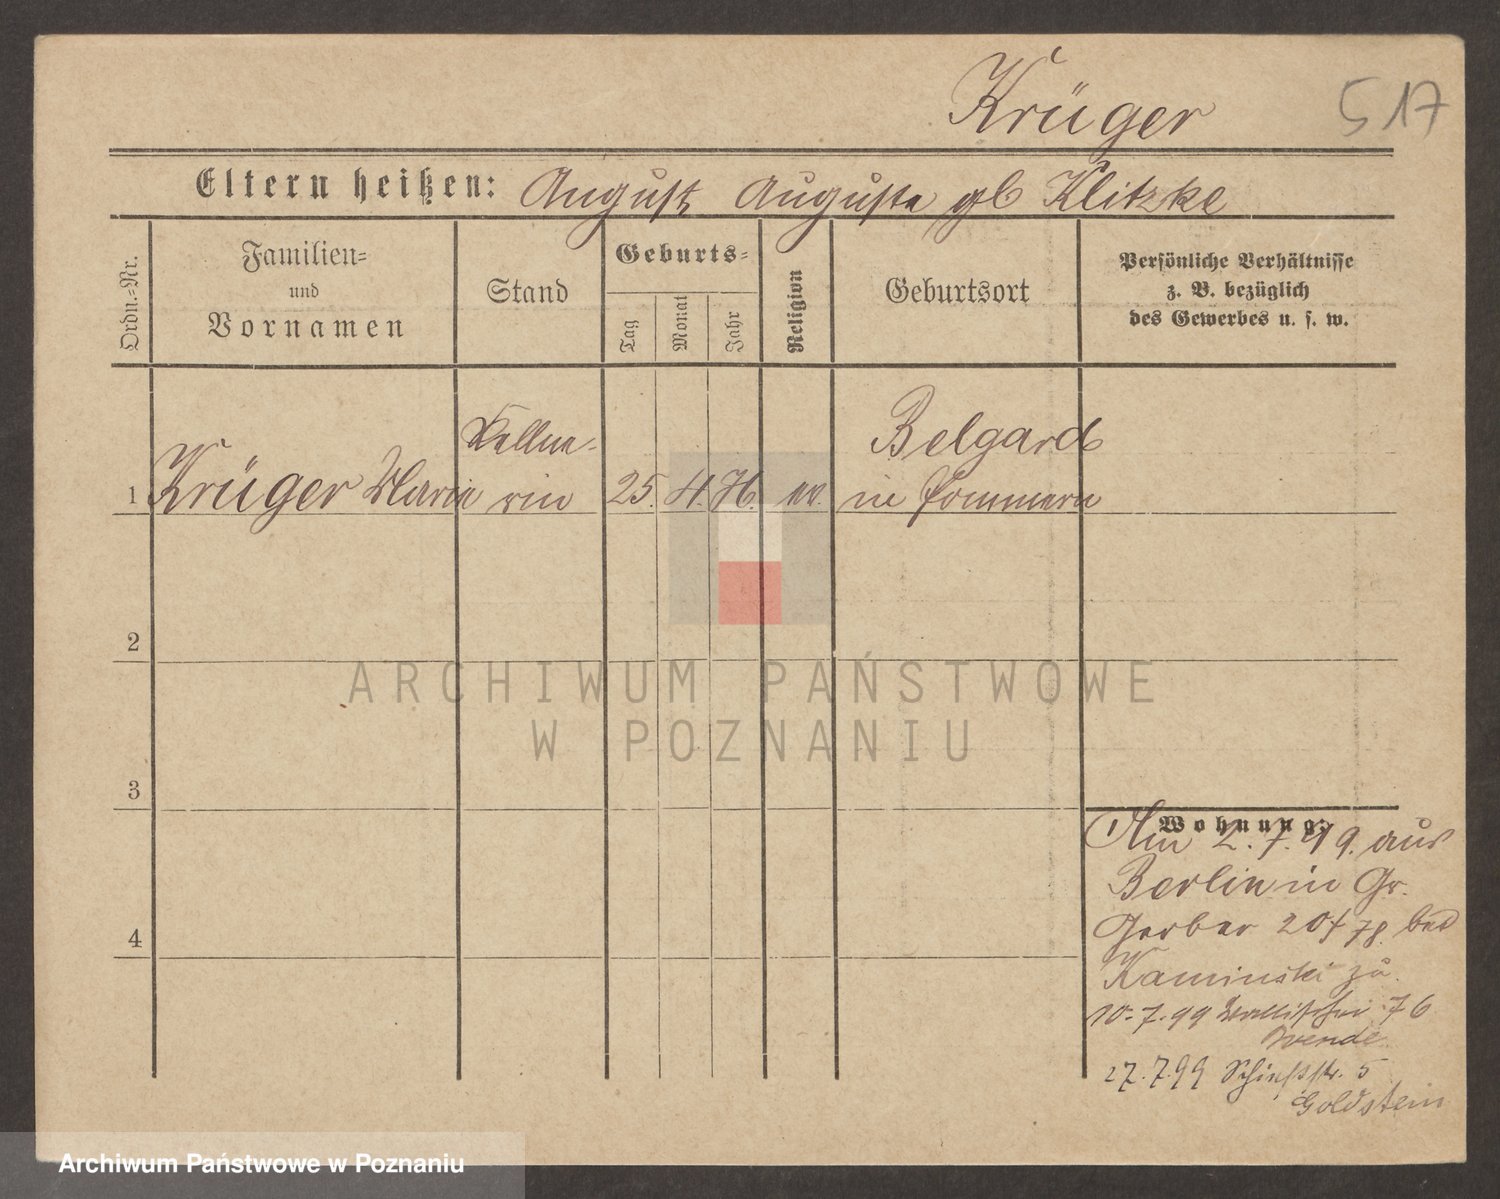 Krüger
517
Eltern heißen: August, Auguste gb Klitzke
Ordn.=Nr.
Familien=
und
Vornamen
Stand
Geburts=
Tag
Monat
Jahr
Religion
Geburtsort
Persönliche Verhältnisse
z. B. bezüglich
des Gewerbes u. s. w.
1
Krüger Maria
Kellne-
rin
25. 4. 76.
Belgard
in Pommern
2
3
4
Wohnung:
Am 2.7.99. aus
Berlin in Gr.
Gerber
Kaminski zu.
10.7.99 Wallischei 76
Wende
27.7.99 Schießstr. 5
Goldstein
ARCHIWUM PAŃSTWOWE
W POZNANIU
Archiwum Państwowe w Poznaniu